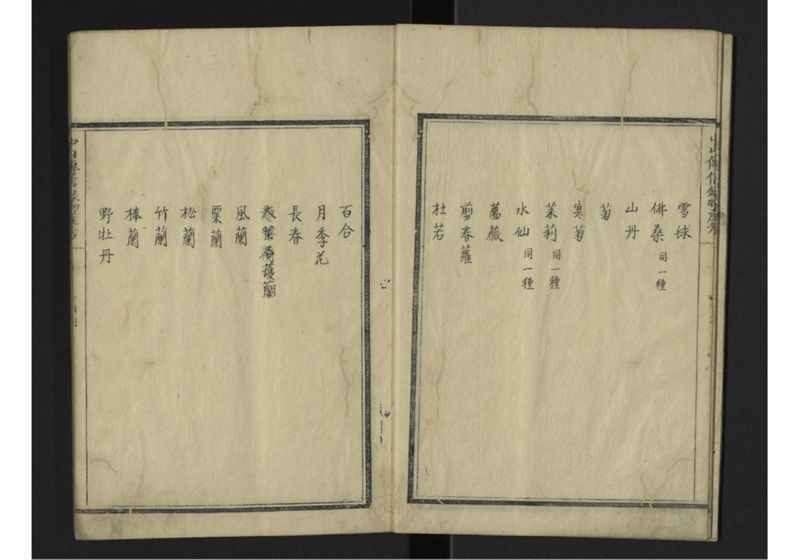 中山傳信録物産考
雪球
佛桑 同一種
山丹
菊
寒菊
茉莉 同一種
水仙 同一種
薔薇
剪春蘿
杜若
百合
月季花
長春
風蘭
粟蘭
松蘭
竹蘭
棒蘭
野牡丹